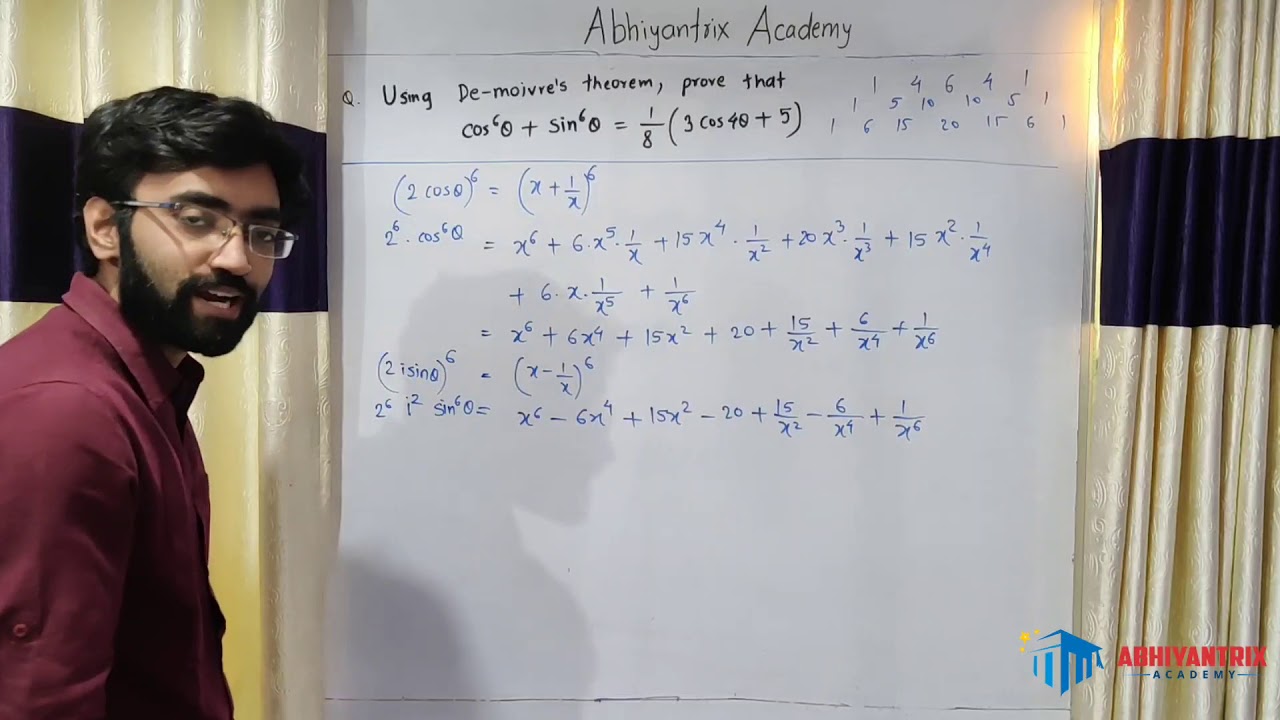 Abhiyantrix Academy
Q. Using De-moivre's theorem, prove that
cos⁶θ + sin⁶θ = 1/8 (3 cos4θ + 5)
1 4 6 4 1
1 5 10 10 5 1
1 6 15 20 15 6 1
(2 cosθ)⁶ = (x + 1/x)⁶
2⁶ · cos⁶θ = x⁶ + 6·x⁵·1/x + 15x⁴·1/x² + 20x³·1/x³ + 15x²·1/x⁴
+ 6·x·1/x⁵ + 1/x⁶
= x⁶ + 6x⁴ + 15x² + 20 + 15/x² + 6/x⁴ + 1/x⁶
(2 isinθ)⁶ = (x - 1/x)⁶
2⁶ i² sin⁶θ = x⁶ - 6x⁴ + 15x² - 20 + 15/x² - 6/x⁴ + 1/x⁶
ABHIYANTRIX
ACADEMY